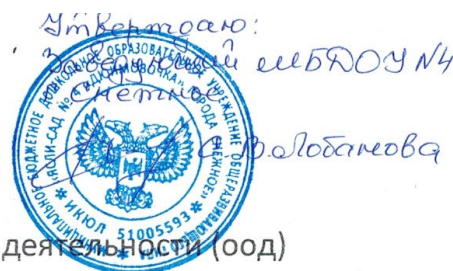 Утверждаю:
Заведующий МБДОУ №4
г. Снежное
С.В. Лобанова
МУНИЦИПАЛЬНОЕ БЮДЖЕТНОЕ ДОШКОЛЬНОЕ ОБРАЗОВАТЕЛЬНОЕ УЧРЕЖДЕНИЕ ОБЩЕРАЗВИВАЮЩЕГО ТИПА
"ЯСЛИ-САД № 4 "ДЮЙМОВОЧКА" ГОРОДА СНЕЖНОЕ"
ИКЮЛ 51005593
деятельности (оод)